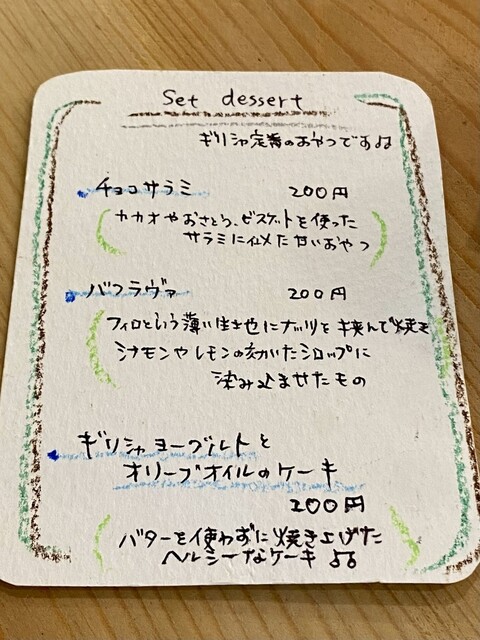 Set dessert
ギリシャ定番のおやつです♫
チョコサラミ 200円
カカオやおさとう、ビスケットを使った
サラミに似せた甘いおやつ
バクラヴァ 200円
フィロという薄い生地にナッツを挟んで焼き
シナモンやレモンの効いたシロップに
染み込ませたもの
ギリシャヨーグルトと
オリーブオイルのケーキ
200円
バターを使わずに焼き上げた
ヘルシーなケーキ♫